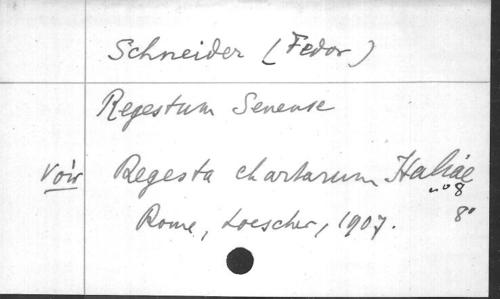 Schneider (Fedor)
Regestum Senense
Voir Regesta chartarum Italiae
n° 8
Rome, Loescher, 1907. 8°